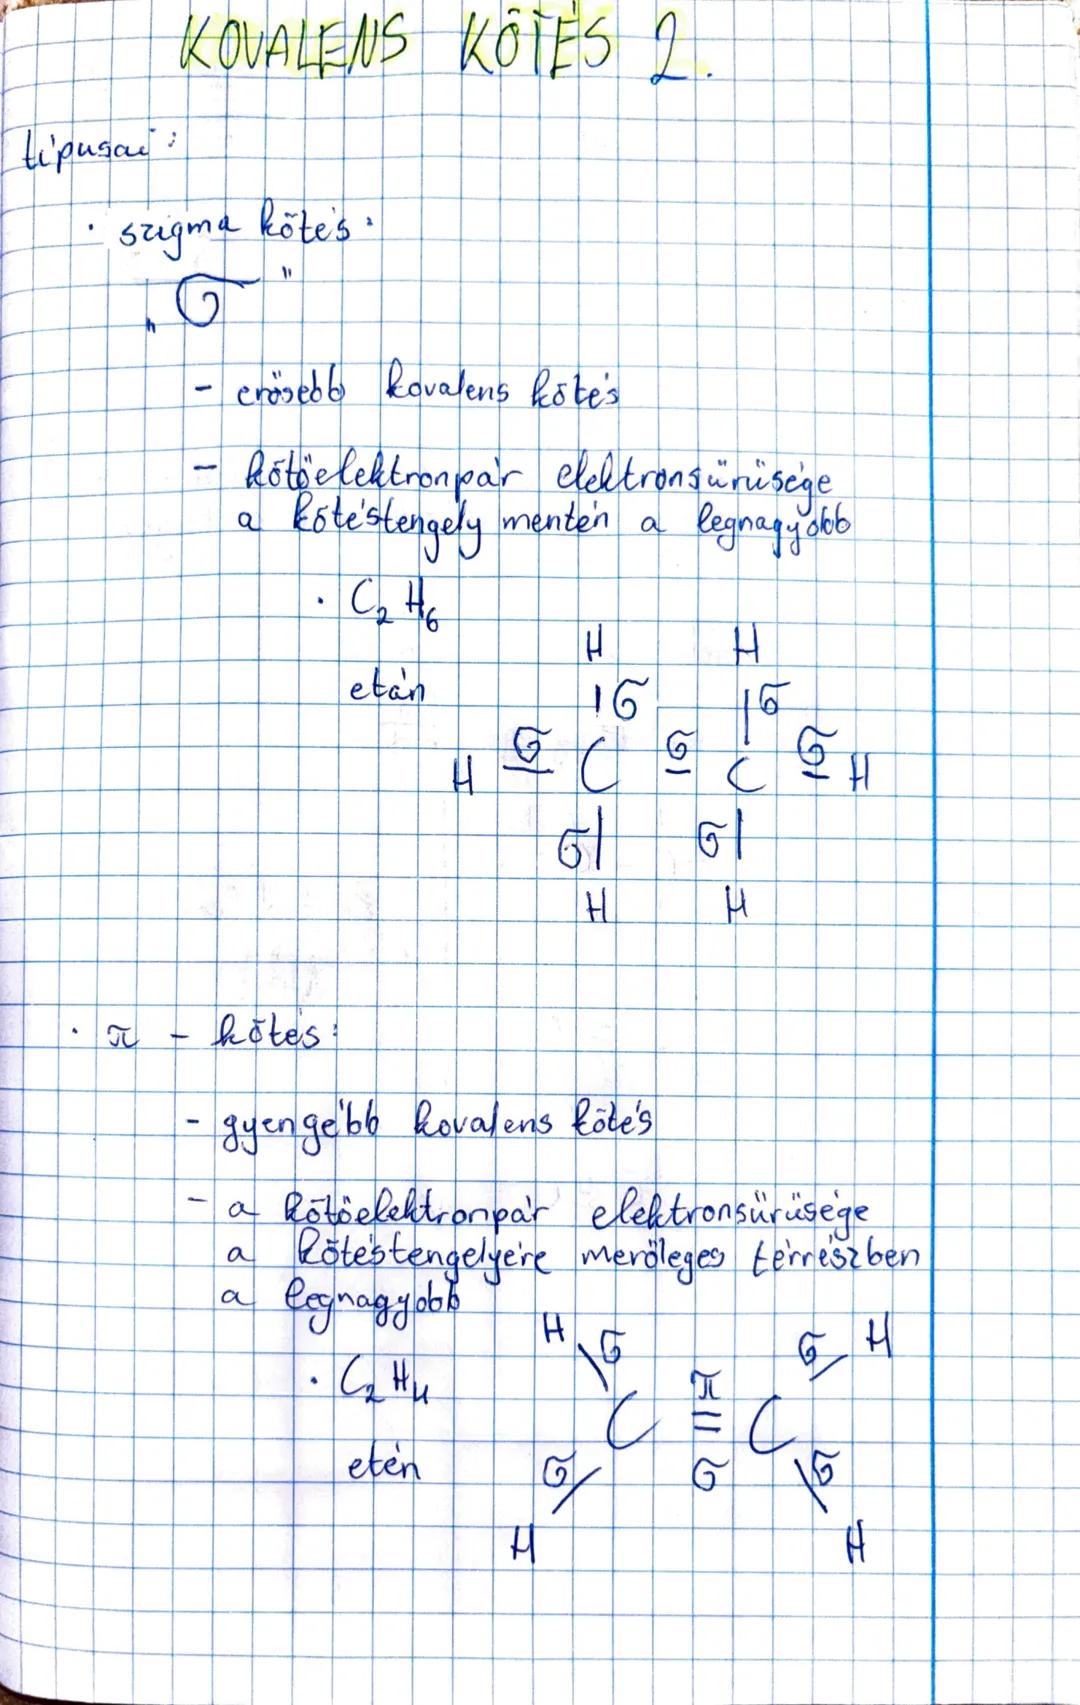 KOVALENS KÖTÉS 2.
típusai:
· szigma kötés:
„σ"
- erősebb kovalens kötés
- kötőelektronpár elektronsűrűsége
a kötéstengely mentén a legnagyobb
· C₂H₆
H H
etán
| σ | σ
H σ C σ C σ H
σ | σ |
H H
· π - kötés:
- gyengébb kovalens kötés
- a kötőelektronpár elektronsűrűsége
a kötéstengelyére merőleges térrészben
a legnagyobb
H σ σ H
· C₂H₄
π
C = C
etén
σ σ σ
H H